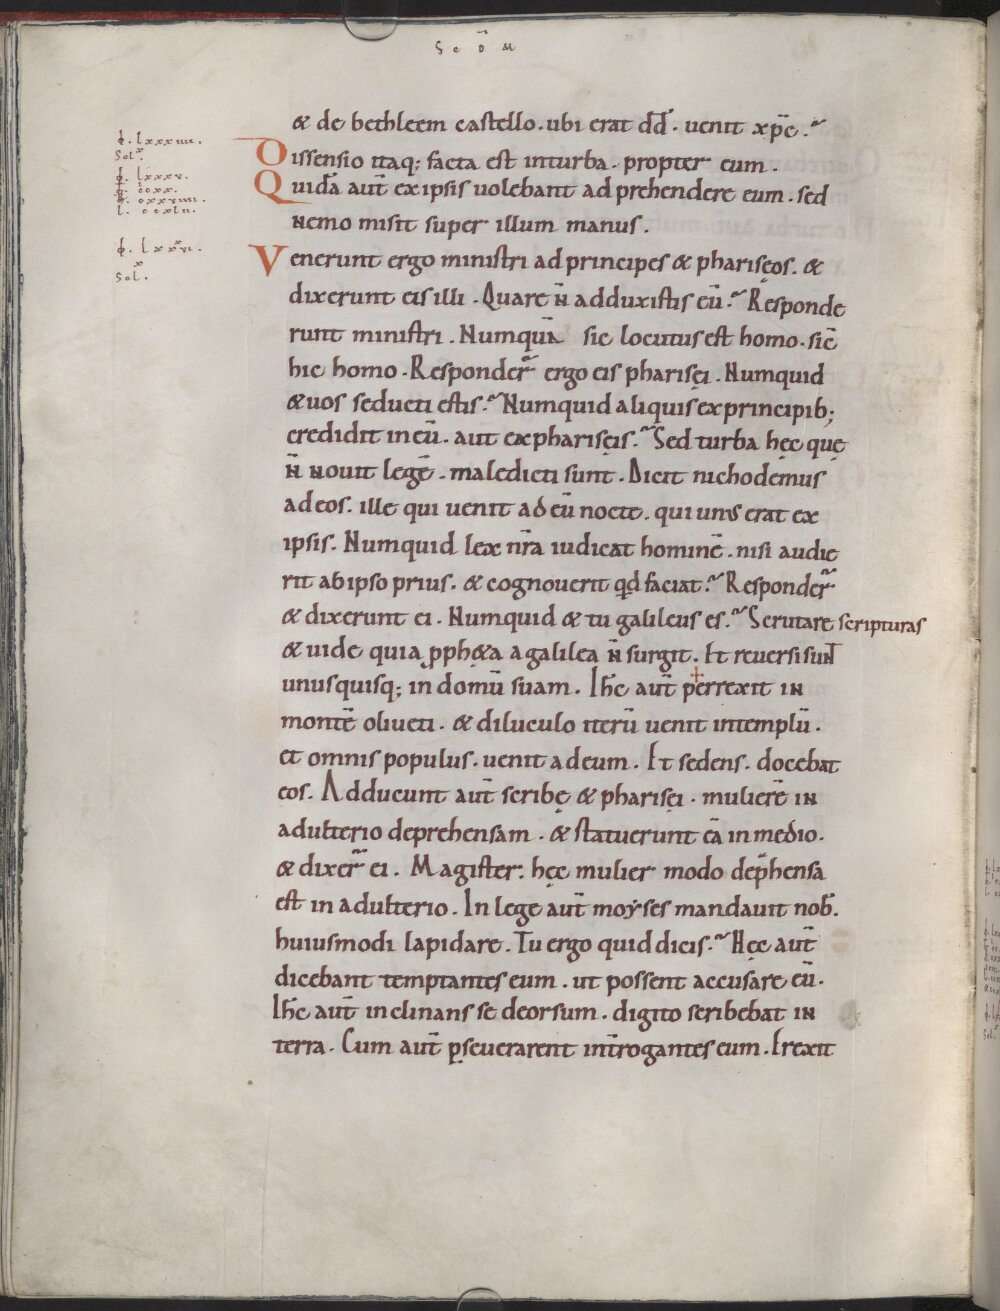 Scd̄m
& de bethleem castello. ubi erat dd̄. uenit xp̄c.
Dissensio itaq; facta est inturba. propter eum.
Quidā aut̄ ex ipsis uolebant ad prehendere eum. sed
nemo misit super illum manus.
Venerunt ergo ministri ad principes & phariseos. &
dixerunt eis illi. Quare n̄ adduxistis eū. Responde
runt ministri. Numquā sic locutus est homo. sic̄
hic homo. Responder̄ ergo eis pharisei. Numquid
& uos seducti estis. Numquid aliquis ex principib;
credidit in eū. aut ex phariseis. Sed turba hęc quę
n̄ nouit legē. maledicti sunt. Dicit nichodemus
ad eos. ille qui uenit ad eū nocte. qui unus erat ex
ipsis. Numquid lex nr̄a iudicat hominē. nisi audie
rit ab ipso prius. & cognouerit qd̄ faciat. Responder̄
& dixerunt ei. Numquid & tu galileus es. Scrutare scripturas
& uide quia ꝓph&a a galilea n̄ surgit. Et reuersi sunt
unusquisq; in domū suam. Ihc̄ aut̄ perrexit in
montē oliueti. & diluculo iterū uenit in templū.
et omnis populus. uenit ad eum. Et sedens. docebat
eos. Adducunt aut̄ scribę & pharisei. mulierē in
adulterio deprehensam. & statuerunt eā in medio.
& dixer̄ ei. Magister. hęc mulier modo dep̄hensa
est in adulterio. In lege aut̄ moẏses mandauit nob̄.
huiusmodi lapidare. Tu ergo quid dicis. Hęc aut̄
dicebant temptantes eum. ut possent accusare eū.
Ihc̄ aut̄ inclinans se deorsum. digito scribebat in
terra. Cum aut̄ ꝑseuerarent int̄rogantes eum. Erexit